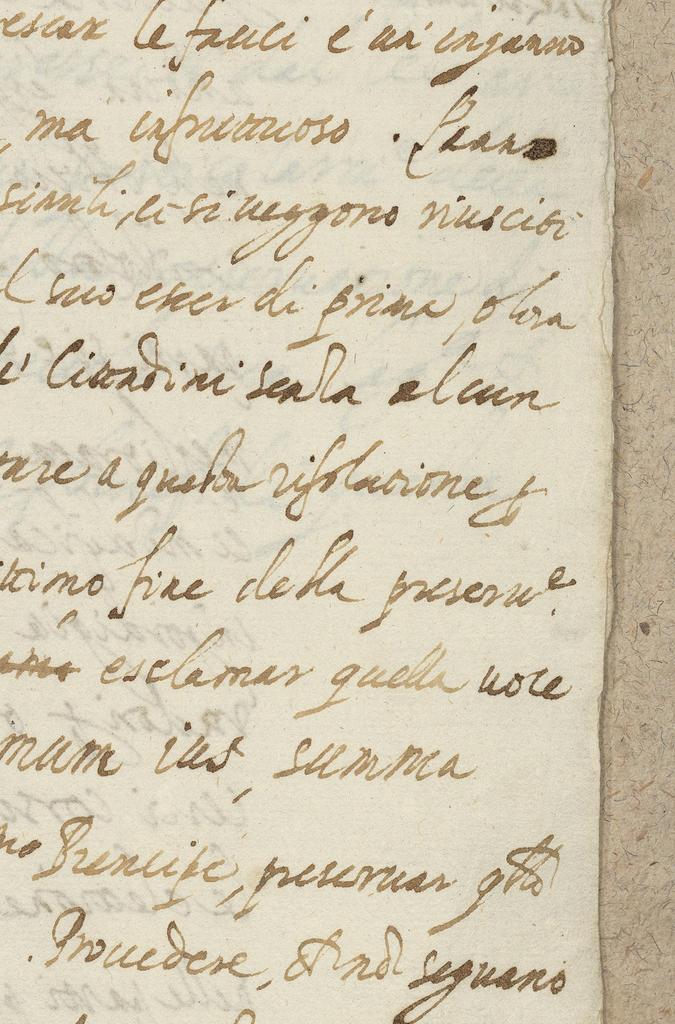 escar le fauci è un' inganno
, ma infrutuoso.
sianti, et si veggono riusciti
l suo esser di prima, o lora
Cittadini senza alcun
rare a questa risolutione
timo fine della preseru.e
esclamar quella uoce
mum ius, summa
Prencipe, preseruar
. Prouedere, seguano